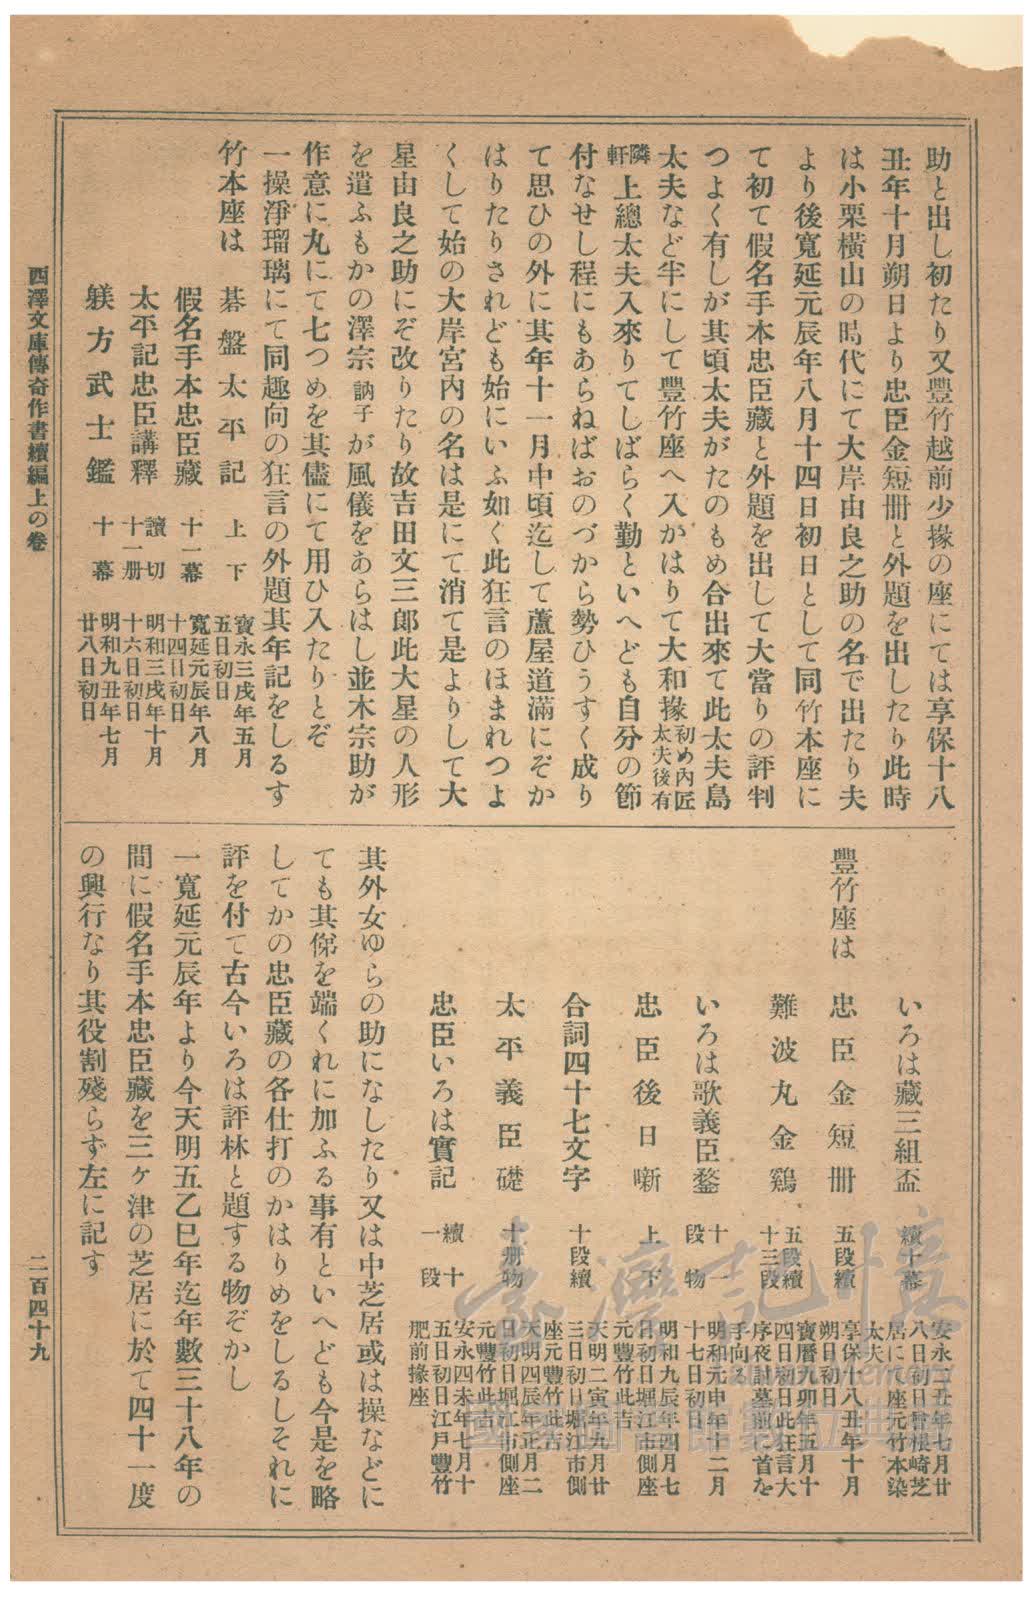 助と出し初たり又豐竹越前少掾の座にては享保十八
丑年十月朔日より忠臣金短冊と外題を出したり此時
は小栗横山の時代にて大岸由良之助の名で出たり夫
より後寬延元辰年八月十四日初日として同竹本座に
て初て假名手本忠臣藏と外題を出して大當りの評判
つよく有しが其頃太夫がたのもめ合出來て此太夫島
太夫など半にして豐竹座へ入かはりて大和掾初め內匠太夫後有
隣軒上總太夫入來りてしばらく勤といへども自分の節
付なせし程にもあらねばおのづから勢ひうすく成り
て思ひの外に其年十一月中頃迄して蘆屋道滿にぞか
はりたりされども始にいふ如く此狂言のほまれつよ
くして始の大岸宮內の名は是にて消て是よりして大
星由良之助にぞ改りたり故吉田文三郞此大星の人形
を遣ふもかの澤宗訥子が風儀をあらはし並木宗助が
作意に丸にて七つめを其儘にて用ひ入たりとぞ
一操淨瑠璃にて同趣向の狂言の外題其年記をしるす
竹本座は 碁盤太平記 上下 寶永三戌年五月五日初日
假名手本忠臣藏 十一幕 寬延元辰年八月十四日初日
太平記忠臣講釋 讀切十一册 明和三戌年十月十六日初日
躾方武士鑑 十幕 明和九丑年七月廿八日初日
いろは藏三組盃 續十幕 安永二丑年七月廿八日初日曾根崎芝居に八座元竹本染太夫
豐竹座は 忠臣金短冊 五段續 享保十八丑年十月朔日初日
難波丸金鷄 五段續十三段 寶曆九卯年五月十四日初日此狂言大序夜討墓前に首を手向る
いろは歌義臣鍪 十一段物 明和元申年十二月十七日初日
忠臣後日噺 上下 明和九辰年四月七日初日堀江市側座元豐竹此吉
合詞四十七文字 十段續 天明二寅年九月廿三日初日堀江市側座元豐竹此吉
太平義臣礎 十册物 天明四辰年正月二日初日堀江市側座元豐竹此吉
忠臣いろは實記 續十一段 安永四未年七月十五日初日江戶豐竹肥前掾座
其外女ゆらの助になしたり又は中芝居或は操などに
ても其俤を端くれに加ふる事有といへども今是を略
してかの忠臣藏の各仕打のかはりめをしるしそれに
評を付て古今いろは評林と題する物ぞかし
一寬延元辰年より今天明五乙巳年迄年數三十八年の
間に假名手本忠臣藏を三ヶ津の芝居に於て四十一度
の興行なり其役割殘らず左に記す
西澤文庫傳奇作書續編上の卷
二百四十九
臺灣記憶
Taiwan Memory
國家圖書館數位典藏